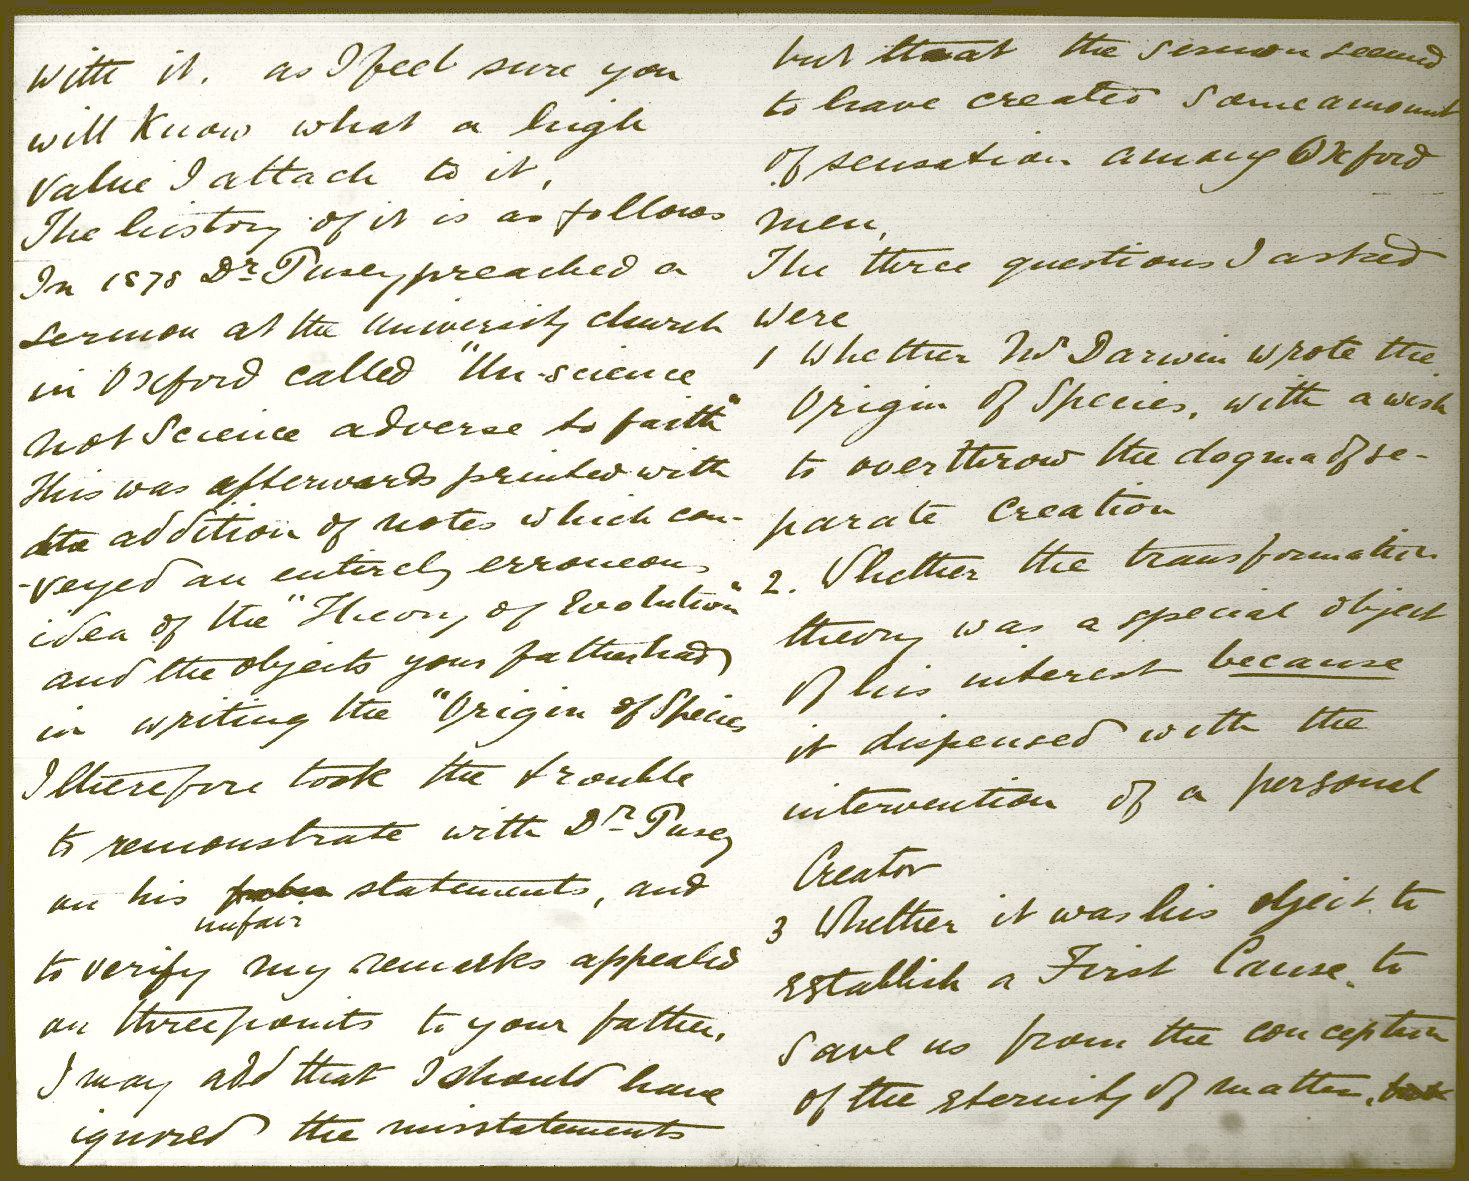 with it. as I feel sure you
will know what a high
value I attach to it,
The history of it is as follows
In 1878 Dr Pusey preached a
sermon at the University church
in Oxford called "Un-science
not Science adverse to faith"
This was afterwards printed with
addition of notes which con-
-veyed an entirely erroneous
idea of the "Theory of Evolution"
and the objects your father had
in writing the "Origin of Species
I therefore took the trouble
to remonstrate with Dr Pusey
on his statements, and
unfair
to verify my remarks appealed
on three points to your father.
I may add that I should have
ignored the misstatements
but that the sermon seemed
to have created some amount
of sensation among Oxford
men,
The three questions I asked
were
1 Whether Mr Darwin wrote the
Origin of Species, with a wish
to overthrow the dogma of se-
parate Creation
2. Whether the transformation
theory was a special object
of his interest because
it dispensed with the
intervention of a personal
Creator
3 Whether it was his object to
establish a First Cause. to
save us from the conception
of the eternity of matter.